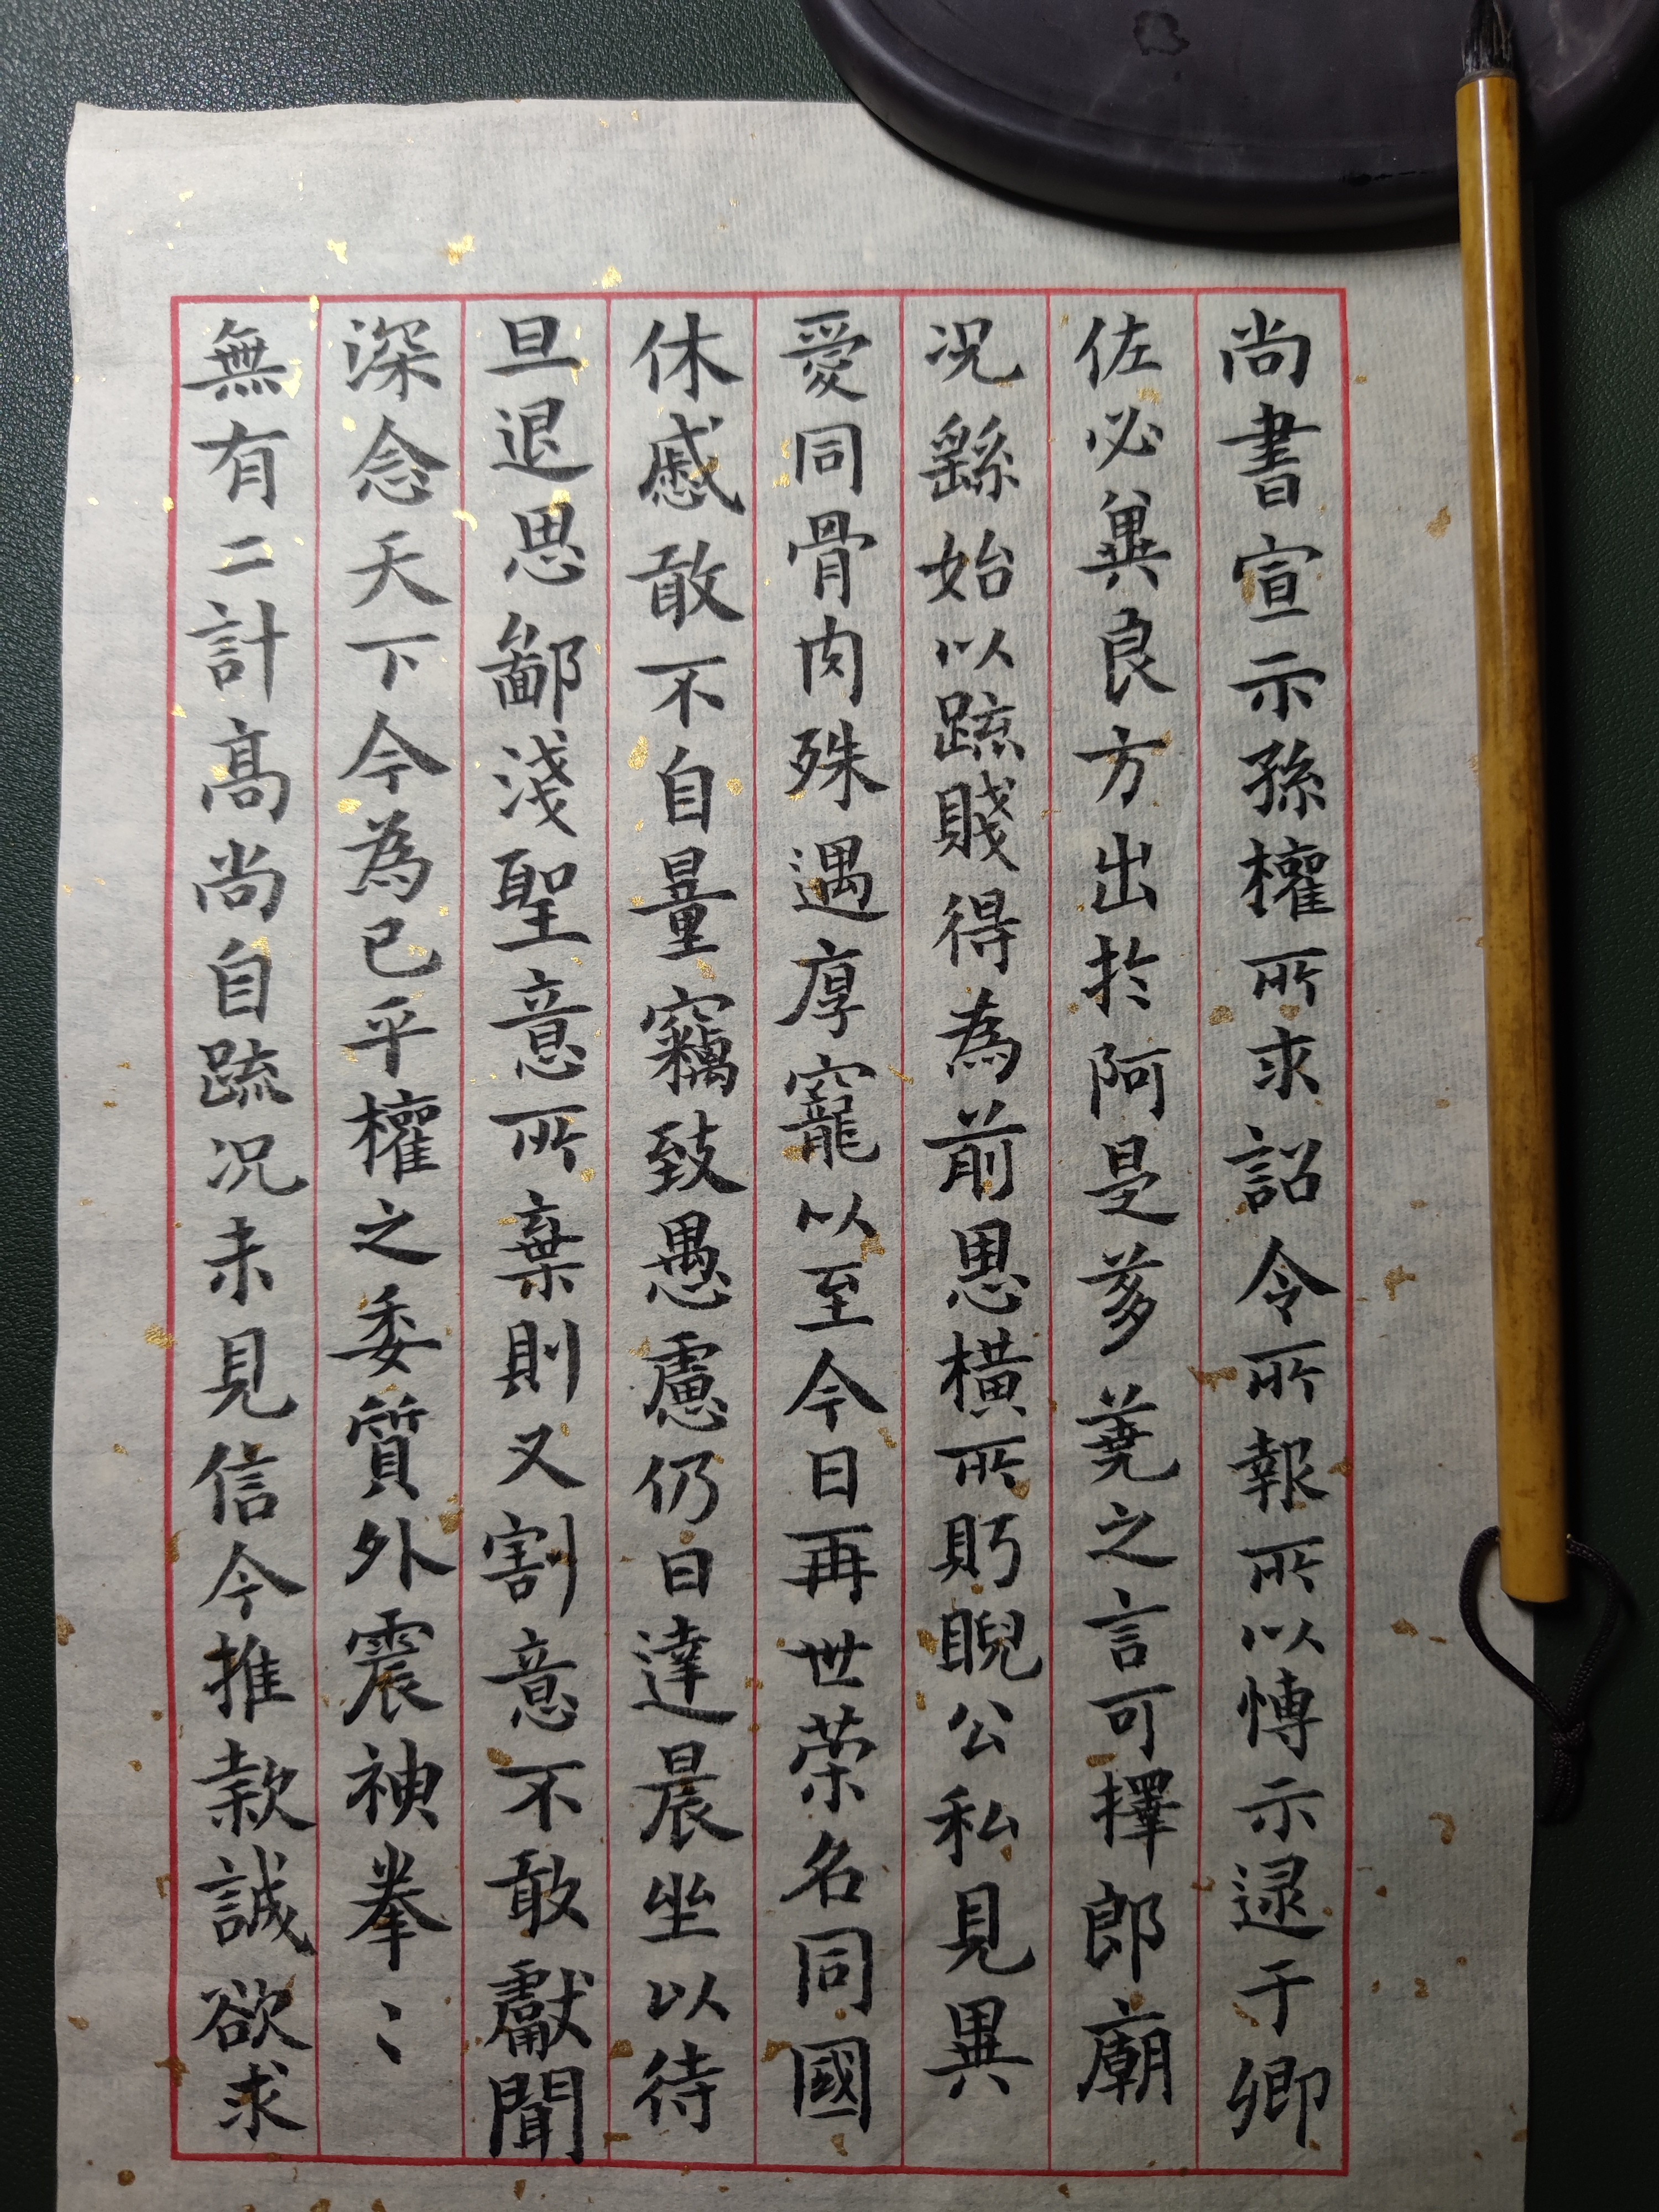 尚書宣示孫權所求詔令所報所以博示逮于卿
佐必冀良方出於阿是芻蕘之言可擇郎廟
況繇始以疏賤得為前恩橫所眄睨公私見異
愛同骨肉殊遇厚寵以至今日再世荣名同國
休慼敢不自量竊致愚慮仍日達晨坐以待
旦退思鄙淺聖意所棄則又割意不敢獻聞
深念天下今為已平權之委質外震神拳〻
無有二計高尚自疏況未見信今推款誠欲求